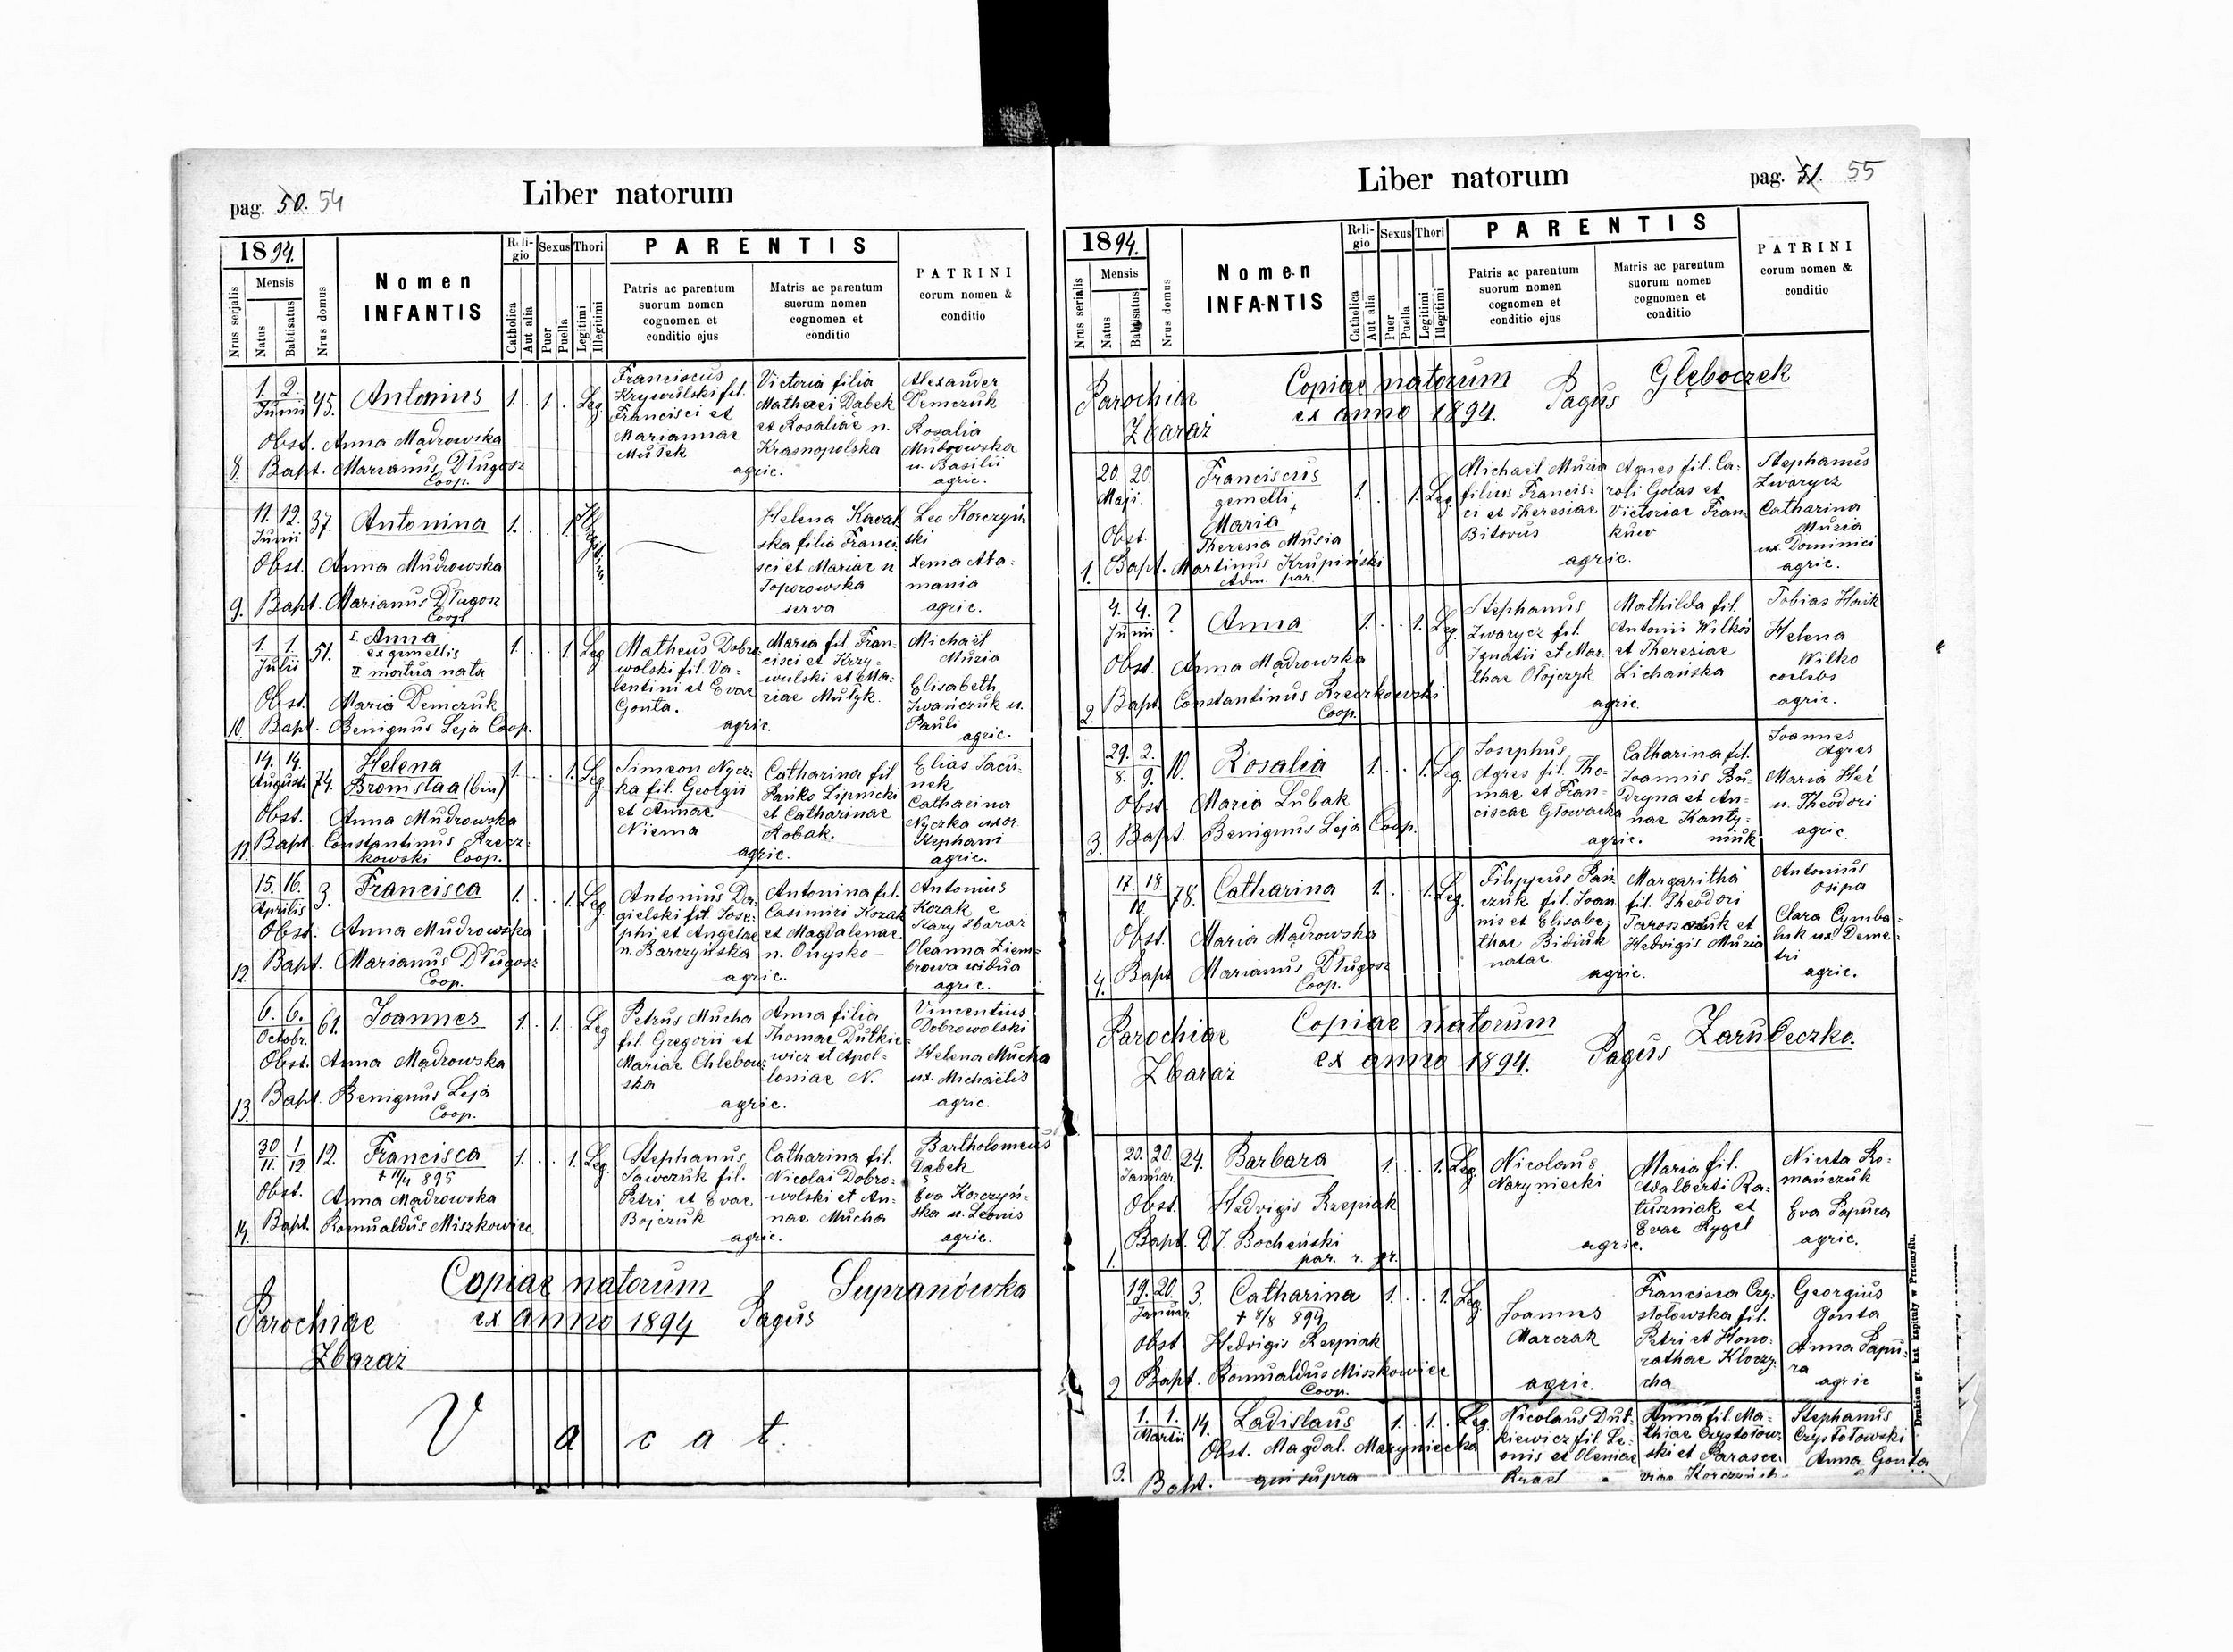 pag. 50. 54
Liber natorum
1894.
Nrus serjalis
Mensis
Natus
Babtisatus
Nrus domus
Nomen
INFANTIS
Religio
Catholica
Aut alia
Sexus
Puer
Puella
Thori
Legitimi
Illegitimi
PARENTIS
Patris ac parentum
suorum nomen
cognomen et
conditio ejus
Matris ac parentum
suorum nomen
cognomen et
conditio
PATRINI
eorum nomen &
conditio
8.
1. 2.
Junii
45.
Antonius
Obst. Anna Mądrowska
Bapt. Marianus Długosz
Coop.
1. . 1. . Leg
Franciscus
Krywulski fil.
Francisci et
Mariannae
Mułek
Victoria filia
Mathaei Dąbek
et Rosaliae n.
Krasnopolska
agric.
Alexander
Demczuk
Rosalia
Mudrowska
u. Basilii
agric.
9.
11. 12.
Junii
37.
Antonina
Obst. Anna Mudrowska
Bapt. Marianus Długosz
Coop.
1. . . 1. Illegitim.
Helena Kowal
ska filia Franci
sci et Mariae n
Toporowska
serva
Leo Korczyń
ski
Xenia Ata-
mania
agric.
10.
1. 1.
Julii
51.
I. Anna
ex gemellis
II mortua nata
Obst. Maria Demczuk
Bapt. Benignus Leja Coop.
1. . . 1. Leg
Matheus Dobro-
wolski fil. Va-
lentini et Evae
Gonta.
Maria fil. Fran-
cisci et Krzy-
wulski et Ma-
riae Mułyk.
agric.
Michael
Muzia
Elisabeth
Iwańczuk u.
Pauli
agric.
11.
14. 14.
Augusti
74.
Helena
Bronisłaa (bin)
Obst. Anna Mudrowska
Bapt. Constantinus Krecz-
kowski Coop.
1. . . 1. Leg
Simeon Nycz-
ka fil. Georgii
et Annae
Niema
Catharina fil
Pańko Lipnicki
et Catharinae
Robak
agric.
Elias Jacu-
nek
Catharina
Nyczka uxor
Stephani
agric.
12.
15. 16.
Aprilis
3.
Francisca
Obst. Anna Mudrowska
Bapt. Marianus Długosz
Coop.
1. . . 1. Leg.
Antonius Do-
gielski fil. Jose-
phi et Angelae
n. Barczyńska
Antonina fil.
Casimiri Kozak
et Magdalenae
n. Onysko
agric.
Antonius
Kozak e
Stary Zbaraż
Oleanna Ziem-
browa vidua
agric.
13.
6. 6.
Octobr.
61.
Joannes
Obst. Anna Mądrowska
Bapt. Benignus Leja
Coop.
1. . 1. . Leg
Petrus Mucha
fil. Gregorii et
Mariae Chlebow-
ska
Anna filia
Thomae Dutkie-
wicz et Apol-
loniae N.
agric.
Vincentius
Dobrowolski
Helena Mucha
ux. Michaëlis
agric.
14.
30 1
11. 12.
12.
Francisca
+ 11/4 895
Obst. Anna Mądrowska
Bapt. Romualdus Miszkowicz
1. . . 1. Leg.
Stephanus
Sawczuk fil.
Petri et Evae
Bojczuk
Catharina fil.
Nicolai Dobro-
wolski et An-
nae Mucha
agric.
Bartholomeus
Dąbek
Eva Korczyń-
ska u. Leonis
agric.
Parochiae
Zbaraż
Copiae natorum
ex anno 1894
Pagus
Supranówka
Vacat.
Liber natorum
pag. 51. 55
1894.
Nrus serialis
Mensis
Natus
Babtisatus
Nrus domus
Nomen
INFANTIS
Religio
Catholica
Aut alia
Sexus
Puer
Puella
Thori
Legitimi
Illegitimi
PARENTIS
Patris ac parentum
suorum nomen
cognomen et
conditio ejus
Matris ac parentum
suorum nomen
cognomen et
conditio
PATRINI
eorum nomen &
conditio
Parochiae
Zbaraż
Copiae natorum
ex anno 1894.
Pagus
Głęboczek
1.
20. 20.
Maji
Franciscus
gemelli
Maria +
Obst. Theresia Musia
Bapt. Martinus Krupiński
Adm. par.
1. . . 1. Leg.
Michael Muzia
filius Francis-
ci et Theresiae
Bitovus
Agnes fil. Ca-
roli Golas et
Victoriae Fran
kuw
agric.
Stephanus
Zwarycz
Catharina
Muzia
ux. Dominici
agric.
2.
4. 4.
Junii
?
Anna
Obst. Anna Mądrowska
Bapt Constantinus Kreczkowski
Coop.
1. . . 1. Leg.
Stephanus
Zwarycz fil.
Ignatii et Mar-
thae Ołojczyk
Mathilda fil.
Antonii Wilkos
et Theresiae
Lichańska
agric.
Tobias Huik
Helena
Wilko
coelebs
agric.
3.
29. 2.
8. 9.
10.
Rosalia
Obst. Maria Lubak
Bapt. Benignus Leja Coop.
1. . . 1. Leg.
Josephus
Agres fil. Tho-
mae et Fran-
ciscae Głowacka
Catharina fil.
Joannis Bu-
dzyna et An-
nae Kanty-
niuk
agric.
Joannes
Agres
Maria Heć
u. Theodori
agric.
4.
17. 18
10.
78.
Catharina
Obst. Maria Mądrowska
Bapt Marianus Długosz
Coop.
1. . . 1. Leg.
Filippus Pań
czuk fil. Joan
nis et Elisabe-
thae Bidiuk
natae.
Margaritha
fil. Theodori
Taroszczuk et
Hedvigis Muzia
agric.
Antonius
Osipa
Clara Cymba-
luk ux. Deme-
tri
agric.
Parochiae
Zbaraż
Copiae natorum
ex anno 1894.
Pagus
Zarubeczko.
1.
20. 20.
Januar.
24.
Barbara
Obst. Hedvigis Rzepiak
Bapt. D. J. Bocheński
par. r. gr.
1. . . 1. Leg.
Nicolaus
Naryniecki
Maria fil.
Adalberti Ra-
tuszniak et
Evae Rygel
agric.
Niceta Ro-
mańczuk
Eva Papura
agric.
2
19. 20.
Januar
3.
Catharina
+ 8/8 894
Obst. Hedvigis Rzepiak
Bapt. Romualdus Miszkowicz
Coop.
1. . . 1. Leg.
Joannes
Marczak
agric.
Francisca Czy-
stołowska fil.
Petri et Hono-
rathae Kloczy-
cha
Georgius
Gonta
Anna Papu-
ra
agric
3.
1. 1.
Martii
14.
Ladislaus
Obst. Magdal. Maryniecka
Bapt. qui supra
1. . 1. . Leg.
Nicolaus Dut-
kiewicz fil. Le-
onis et Oleniae
Anna fil. Ma-
thiae Czystołow-
ski et Parasce
Stephanus
Czystołowski
Anna Gonta
Drukiem gr. kat. kapituły w Przemyślu.